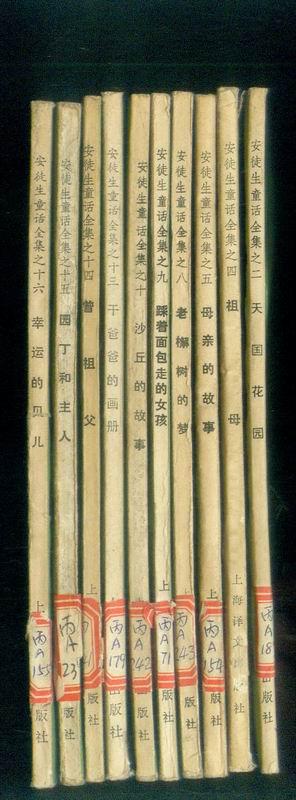 安徒生童话全集之十六 幸运的贝儿
上
丙A155
版社
安徒生童话全集之十五 园丁和主人
上
丙A123
版社
安徒生童话全集之十四 曾祖父
上
版社
安徒生童话全集之十三 干爸爸的画册
上
丙A179
版社
安徒生童话全集之十 沙丘的故事
上
丙A242
版社
安徒生童话全集之九 踩着面包走的女孩
上
丙A71
版社
安徒生童话全集之八 老槲树的梦
上
丙A243
版社
安徒生童话全集之五 母亲的故事
上
丙A154
版社
安徒生童话全集之四 祖母
上海译文出版社
安徒生童话全集之二 天国花园
上
丙A18
出版社